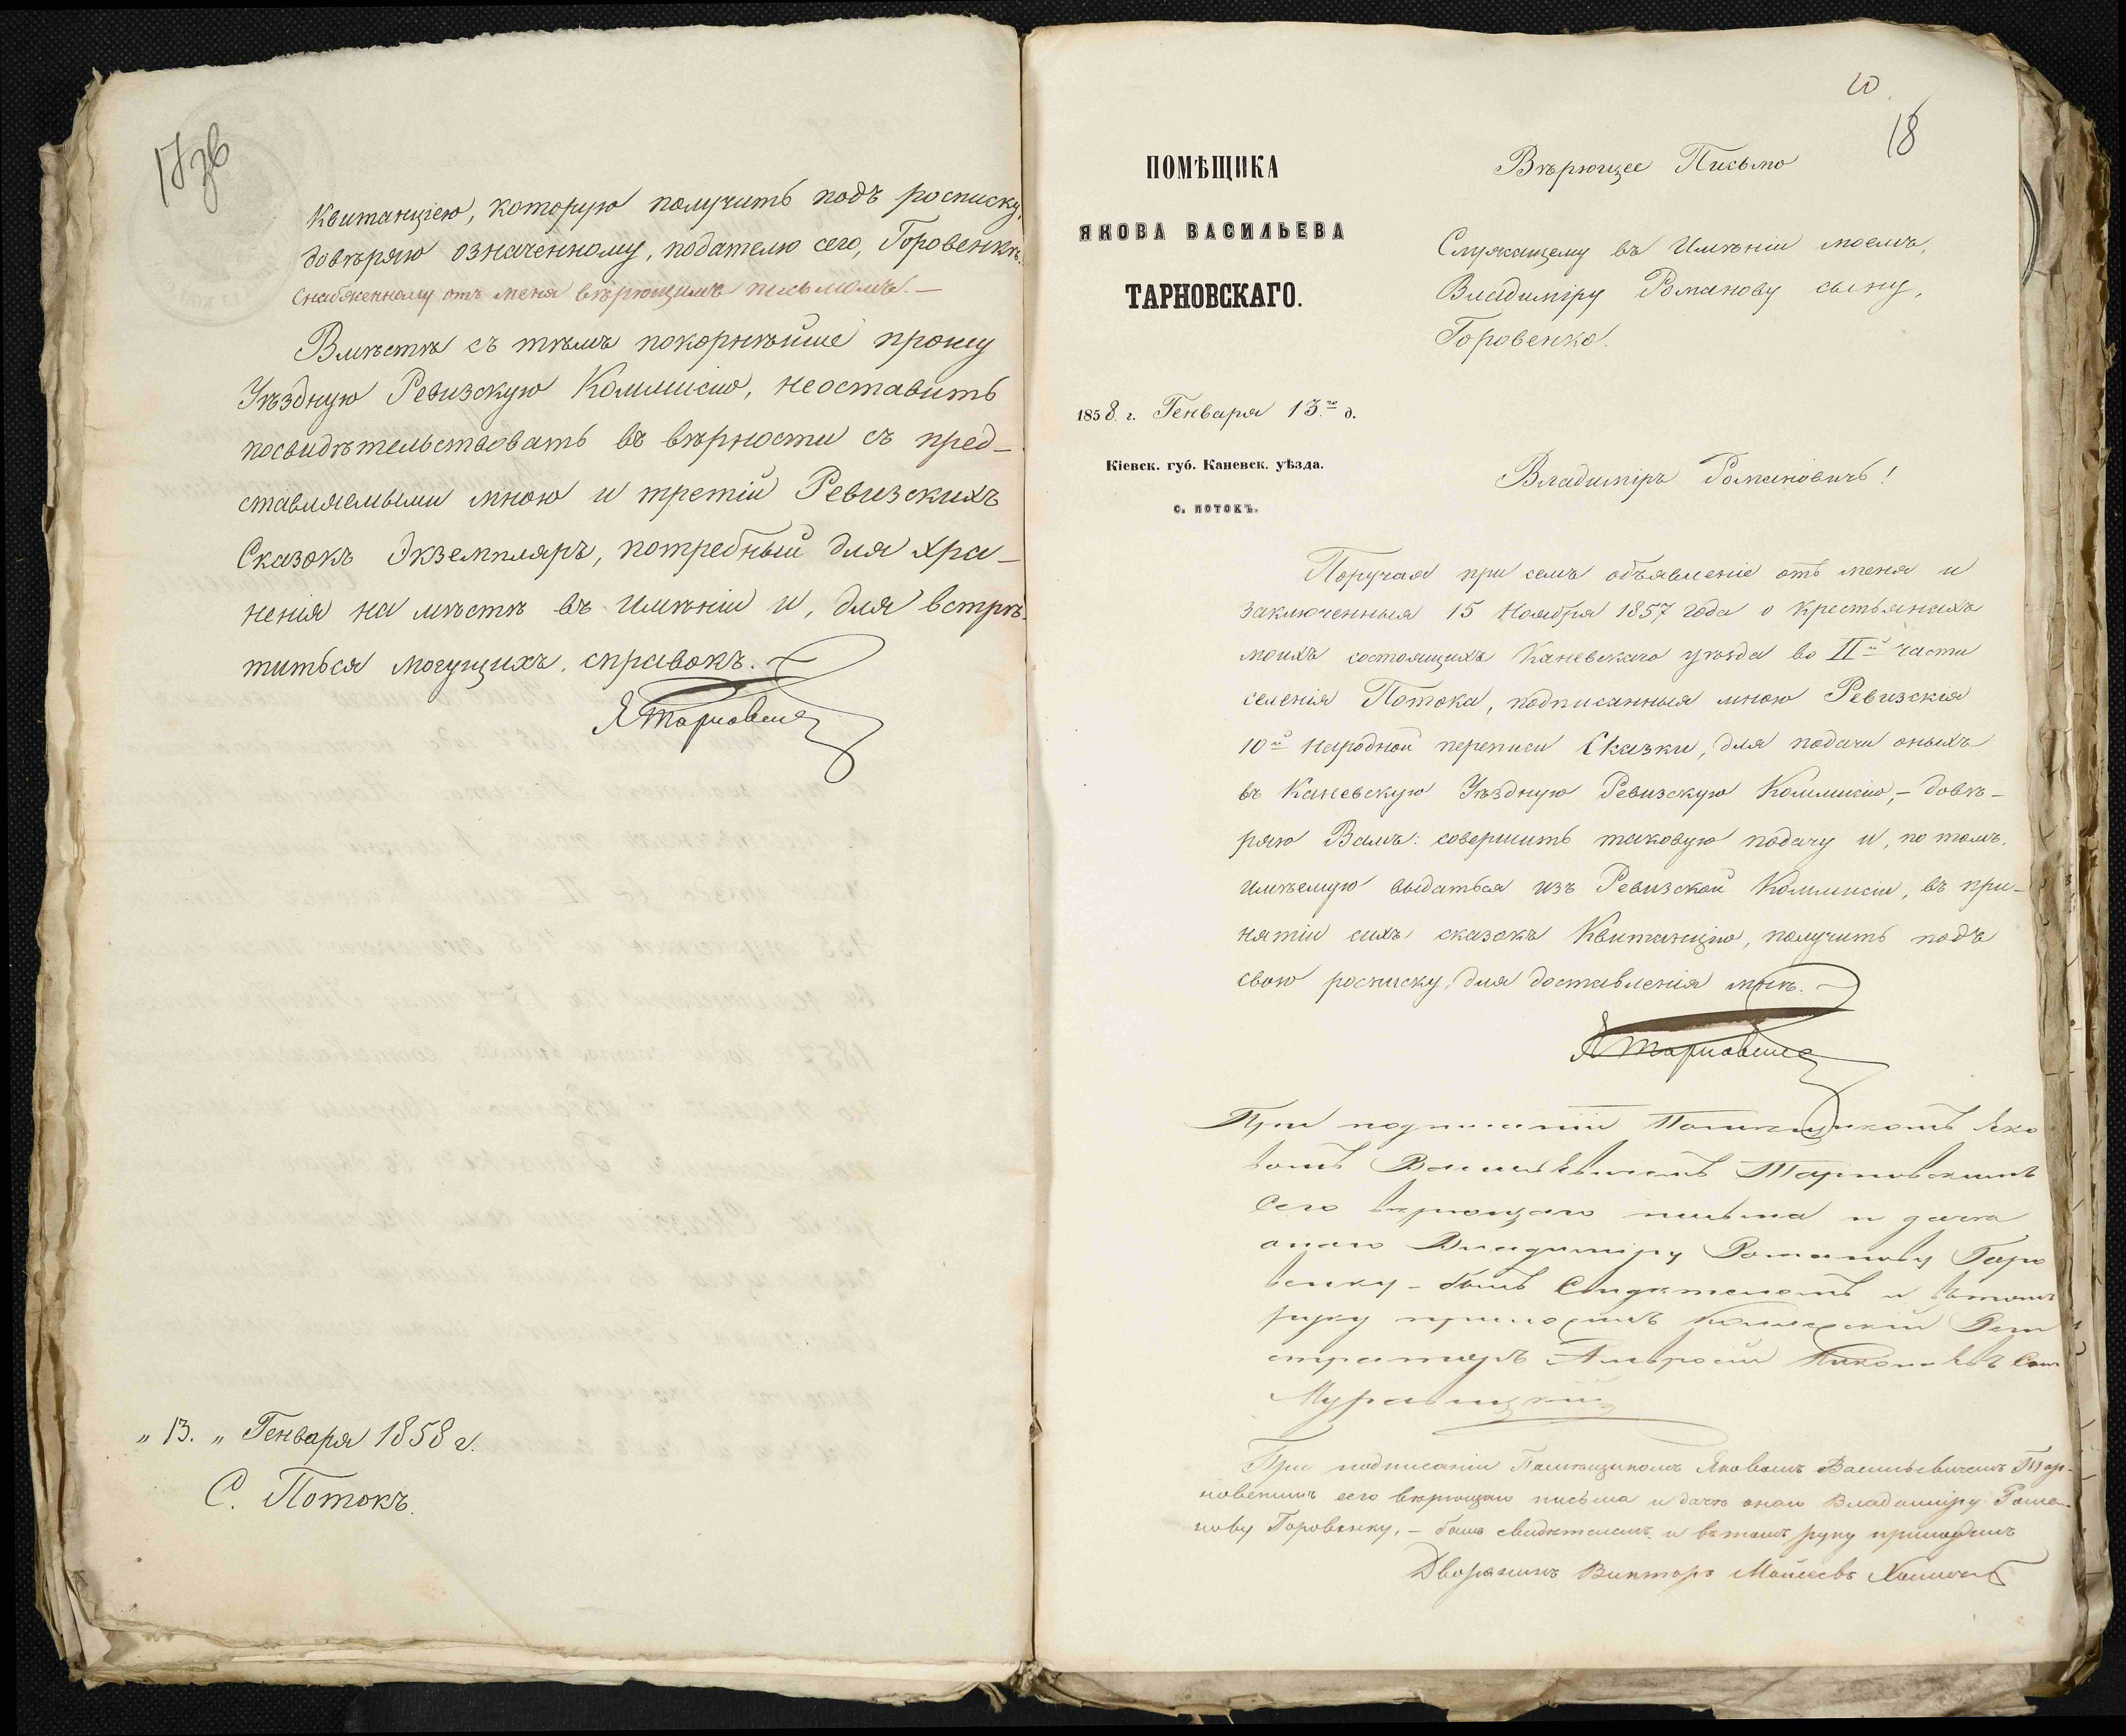 17зв
Квитанцією, которую получить подъ росписку,
довѣряю означенному, подателю сего, Горовенкѣ,
снабженному отъ меня вѣрющимъ письмомъ.—
Вмѣстѣ съ тѣмъ покорнѣйше прошу
Уѣздную Ревизскую Коммисію, неоставить
посвидѣтельствовать въ вѣрности съ пред-
ставляемыми мною и третій Ревизскихъ
Сказокъ Экземпляръ, потребный для хра-
ненія на мѣстѣ въ имѣніи и, для встрѣ-
титься могущихъ, справокъ.
ЯТарновскій
„13.„ Генваря 1858 г.
С. Потокъ.
10
18
ПОМѢЩИКА
ЯКОВА ВАСИЛЬЕВА
ТАРНОВСКАГО.
1858 г. Генваря 13.го д.
Кіевск. губ. Каневск. уѣзда.
С. ПОТОКЪ.
Вѣрющее Письмо
Служащему въ Имѣніи моемъ,
Владиміру Романову сыну,
Горовенко.
Владиміръ Романовичъ!
Поручая при семъ объявленіе отъ меня и
заключенныя 15 Ноября 1857 года о крестьянахъ
моихъ состоящихъ Каневскаго уѣзда во IIй части
селенія Потока, подписанныя мною Ревизскія
10й народной переписи Сказки, для подачи оныхъ
въ Каневскую Уѣздную Ревизскую Коммисію,— довѣ-
ряю Вамъ: совершить таковую подачу и, по томъ,
имѣемую выдаться изъ Ревизской Коммисіи, въ при-
нятіи сихъ сказокъ Квитанцію, получить подъ
свою росписку, для доставленія мнѣ.
ЯТарновскій
При подписаніи Помѣщикомъ Яко
вомъ Васильевичемъ Тарновскимъ
Сего вѣрющаго письма и дачѣ
онаго Владиміру Романову Горо
венку - былъ Свидѣтелемъ и въ томъ
руку приложилъ Коллежскій Реги
страторъ Амвросій
При подписаніи Помѣщикомъ Яковомъ Васильевичемъ Тар-
новскимъ сего вѣрющаго письма и дачѣ онаго Владиміру Рома-
нову Горовенку, — былъ свидѣтелемъ и въ томъ руку приложилъ
Дворянинъ Викторъ Моисеевъ